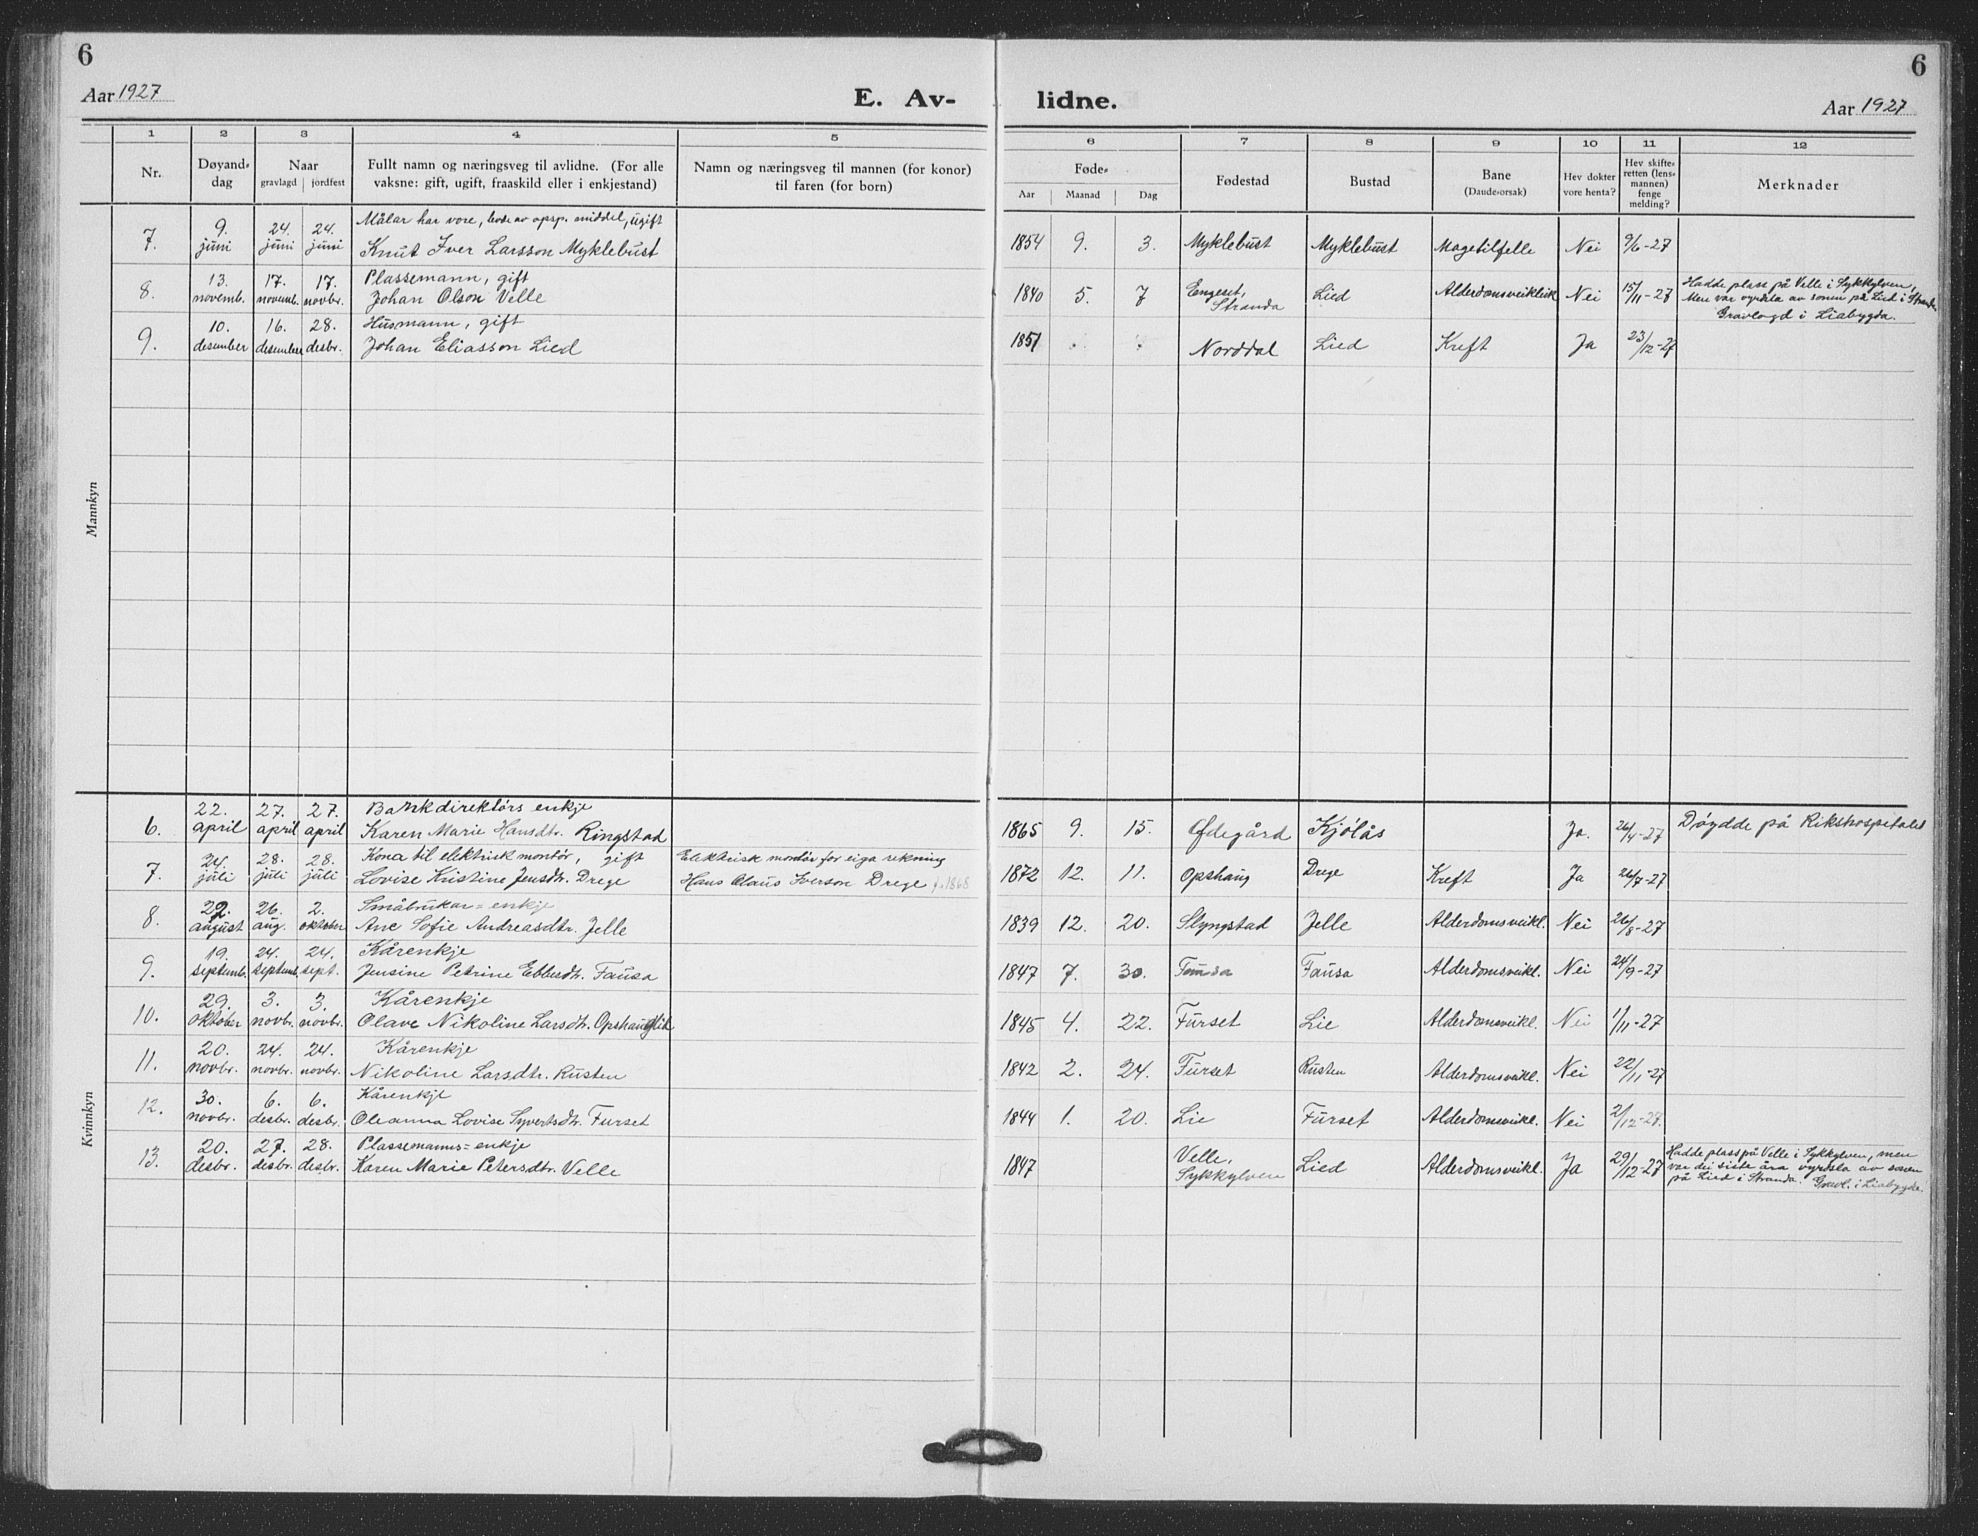 6
6
Aar 1927
E. Av-
lidne.
Aar 1927
1 2 3 4 5 6 7 8 9 10 11 12
Nr.
Døyand-
dag
Naar
gravlagd jordfest
Fullt namn og næringsveg til avlidne. (For alle
vaksne: gift, ugift, fraaskild eller i enkjestand)
Namn og næringsveg til mannen (for konor)
til faren (for born)
Føde-
Aar Maanad Dag
Fødestad
Bustad
Bane
(Daude-orsak)
Hev dokter
vore henta?
Hev skifte-
retten (lens-
mannen)
fenge
melding?
Merknader
Mannkyn
9. 24. 24. Målar har vore, levde av opsp. middel, ugift
7. juni juni juni Knut Iver Larsson Myklebust 1854 9. 3. Myklebust Myklebust Magetilfelle Nei 9/6-27
13. 17. 17. Plassemann, gift
8. novemb. novemb. novbr. Johan Olson Velle 1840 5. 7 Engeset, Stranda Lied Alderdomsveikleik Nei 15/11-27 Hadde plass på Velle i Sykkylven,
Men var vyrdsla av sonen på Lied i Stranda
Gravlagd i Liabygda.
10. 16. 28. Husmann, gift
9. desember desember desbr. Johan Eliasson Lied 1851 Norddal Lied Kreft Ja 23/12-27
Kvinnkyn
22. 27. 27. Bankdirektørs enkje
6. april april april Karen Marie Hansdtr. Ringstad 1865 9. 15. Ødegård Kjølås Ja. 26/4-27 Døydde på Rikshospitalet
24. 28. 28. Kona til elektrisk montør, gift Elektrisk montør for eiga rekning
7. juli juli juli Lovise Kristine Jensdtr. Drege Hans Claus Iverson Drege f. 1868 1872 12. 11. Opshaug Drege Kreft Ja 26/7-27
22. 26. 2. Småbrukar-enkje
8. august aug. oktober Ane Sofie Andreasdtr. Jelle 1839 12. 20. Slyngstad Jelle Alderdomsveikl. Nei 26/8-27
19. 24. 24. Kårenkje
9. septemb. septemb. sept. Jensine Petrine Ebbesdtr. Fausa 1847 7. 30. Fausa Fausa Alderdomsveikl. Nei 24/9-27
29. 3. 3. Kårenkje
10. oktober novbr. novbr. Olave Nikoline Larsdtr. Opshauglid 1845 4. 22. Furset Lie Alderdomsveikl. Nei 1/11-27
20. 24. 24. Kårenkje
11. novbr. novbr. novbr. Nikoline Larsdtr. Rusten 1842 2. 24. Furset Rusten Alderdomsveikl. Nei 22/11-27
30. 6. 6. Kårenkje
12. novbr. desbr. desbr. Oleanna Lovise Syvertsdtr. Furset 1844 1. 20. Lie Furset Alderdomsveikl. Nei 2/12-27.
20. 27. 28. Plassemanns-enkje
13. desbr. desbr. desbr. Karen Marie Petersdtr. Velle 1847 Velle, Sykkylven Lied Alderdomsveikl. Ja 29/12-27 Hadde plass på Velle i Sykkylven, men
var dei siste åra vyrdsla av sonen
på Lied i Stranda. Gravl. i Liabygda.